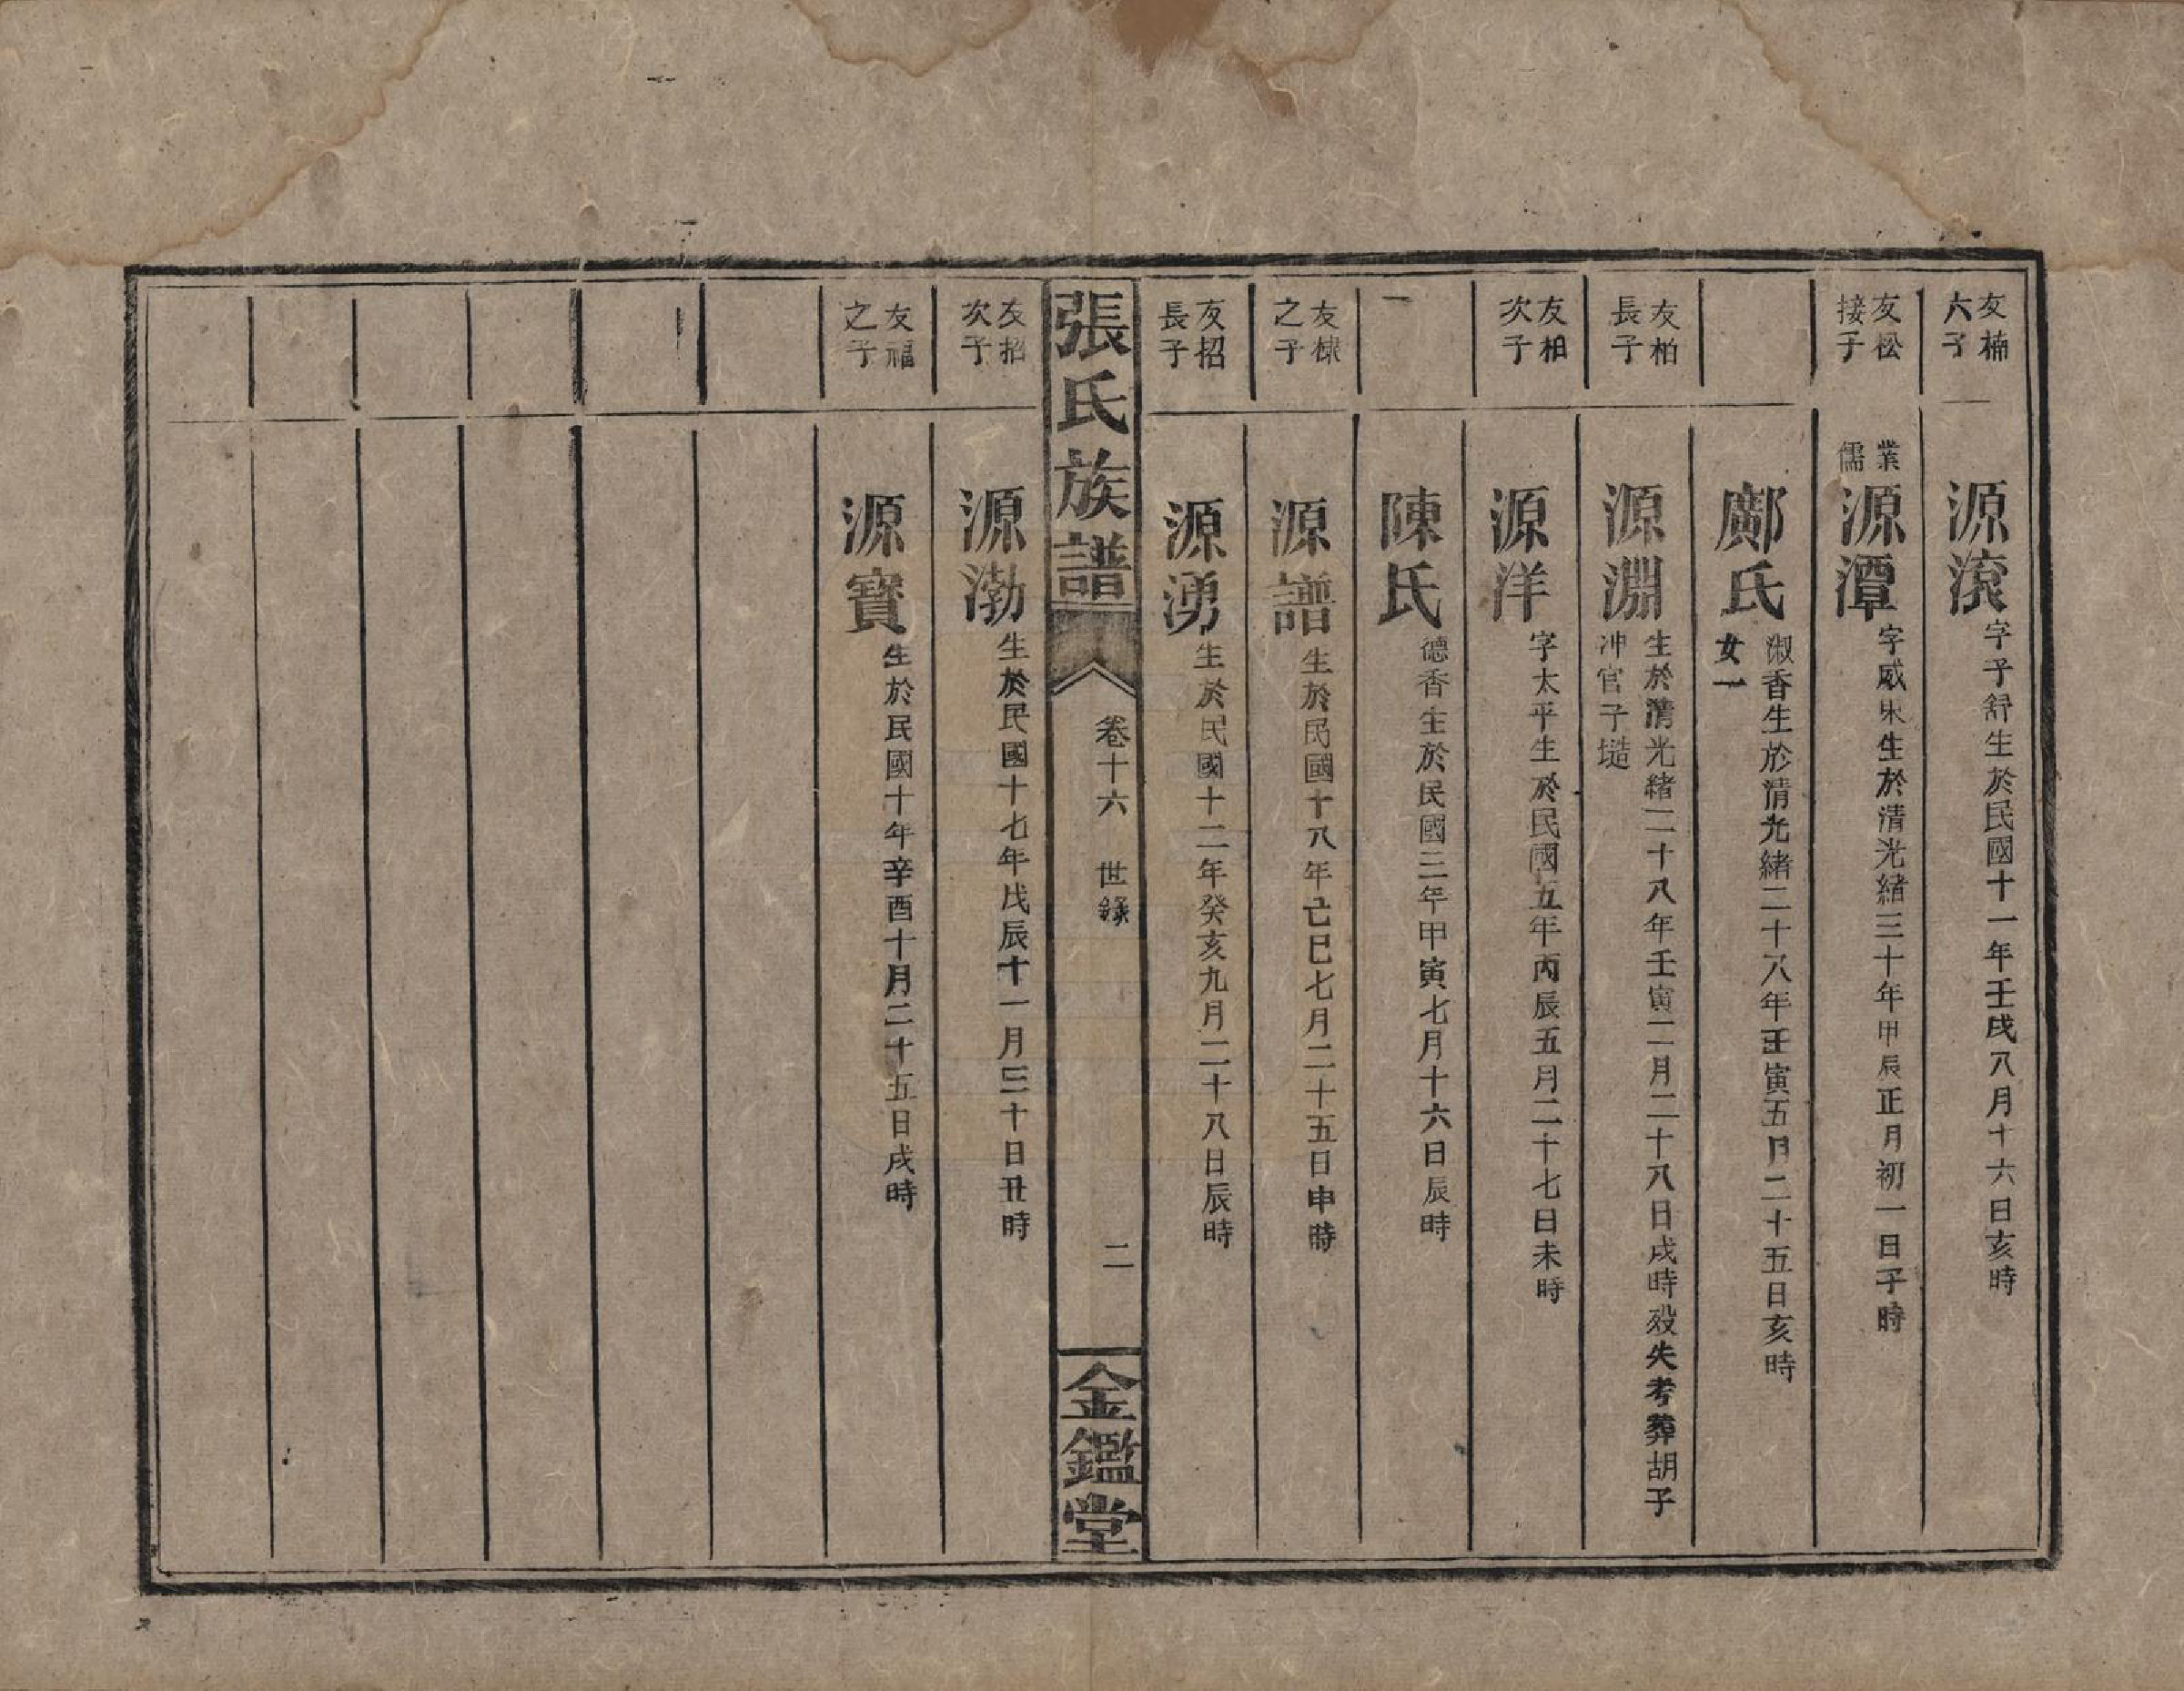 友楠
六子
源滾
字子舒生於民國十一年壬戌八月十六日亥時
友松
接子
業
儒
源潭
字威生於清光緒三十年甲辰正月初一日子時
鄺氏
淑香生於清光緒二十八年壬寅五月二十五日亥時
女一
友柏
長子
源淵
生於清光緒二十八年壬寅二月二十八日戌時歿失考葬胡子
冲官子塏
友柏
次子
源洋
字太平生於民國五年丙辰五月二十七日未時
陳氏
德香生於民國三年甲寅七月十六日辰時
友棣
之子
源譜
生於民國十八年己巳七月二十五日申時
友招
長子
源湧
生於民國十二年癸亥九月二十八日辰時
張氏族譜
卷十六 世錄
二
金鑑堂
友招
次子
源渤
生於民國十七年戊辰十一月三十日丑時
友福
之子
源寶
生於民國十年辛酉十月二十五日戌時